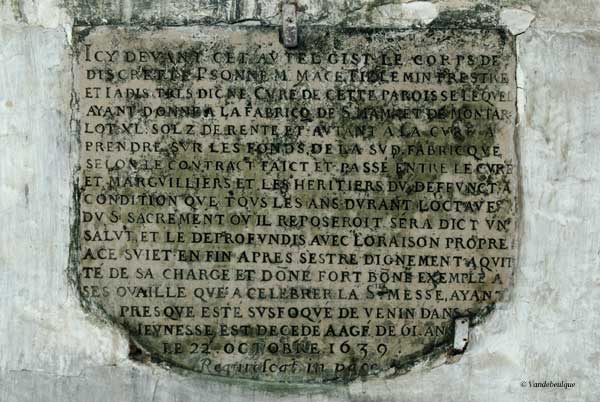 ICY DEVANT CET AVTEL GIST LE CORPS DE
DISCRETTE PSONNE M. MACE TILLEMIN PRESTRE
ET IADIS TRES DIGNE CVRE DE CETTE PAROISSE LEQVEL
AYANT DONNE A LA FABRICQ DE S. MAMET DE MONTAR
LOT XL. SOLZ DE RENTE ET AVTANT A LA CVRE A
PRENDRE SVR LES FONDS DE LA SVD. FABRICQVE
SELON LE CONTRACT FAICT ET PASSÉ ENTRE LE CVRÉ
ET MARGVILLIERS ET LES HERITIERS DV DEFFVNCT A
CONDITION QVE TOVS LES ANS DVRANT LOCTAVE
DV S. SACREMENT OV IL REPOSEROIT SERA DICT VN
SALVT ET LE DEPROFVNDIS AVEC LORAISON PROPRE
A CE SVIET EN FIN APRES SESTRE DIGNEMENT AQVIT
TE DE SA CHARGE ET DONE FORT BŌNE EXEMPLE A
SES OVAILLE QVE A CELEBRER LA STE MESSE, AYANT
PRESQVE ESTE SVSFOQVE DE VENIN DANS
IEVNESSE EST DECEDE AAGE DE 61. ANS
LE 22. OCTOBRE 1639
Requiescat in pace
© Vandebeulque